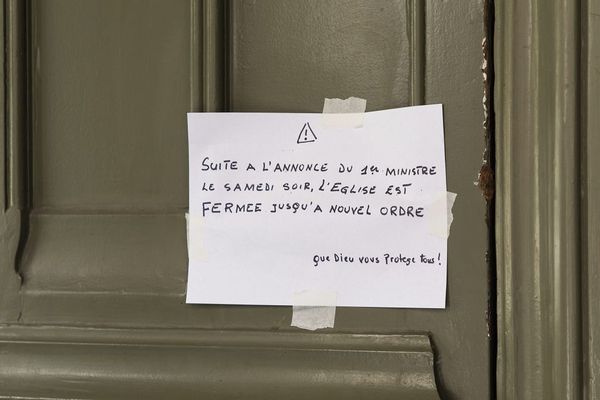 SUITE A L'ANNONCE DU 1er MINISTRE
LE SAMEDI SOIR, L'EGLISE EST
FERMEE JUSQU'A NOUVEL ORDRE
que Dieu vous Protege tous!